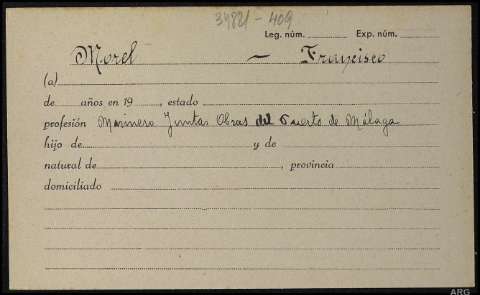 39881-409
Leg. núm. Exp. núm.
Morel — Francisco
(a)
de años en 19 , estado
profesión Marinero Juntas Obras del Puerto de Málaga
hijo de y de
natural de , provincia
domiciliado
ARG